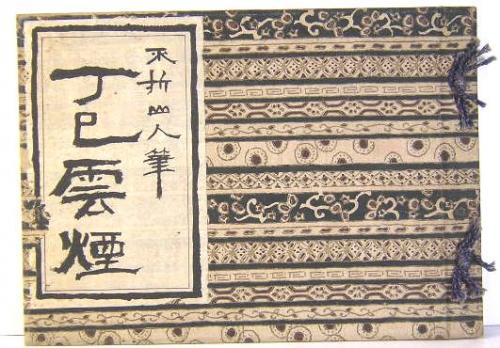 不折山人筆
丁巳雲煙